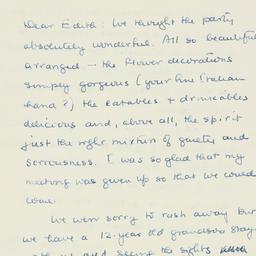 Dear Edith: We thought the party
absolutely wonderful. All so beautifully
arranged — the flower decorations
simply gorgeous (your fine Italian
hand?) the eatables & drinkables
delicious and, above all, the spirit
just the right mixture of gaiety and
seriousness. I was so glad that my
meeting was given up so that we could
come.
We were sorry to rush away but
we have a 12-year old grandson stay
and seeing the sights